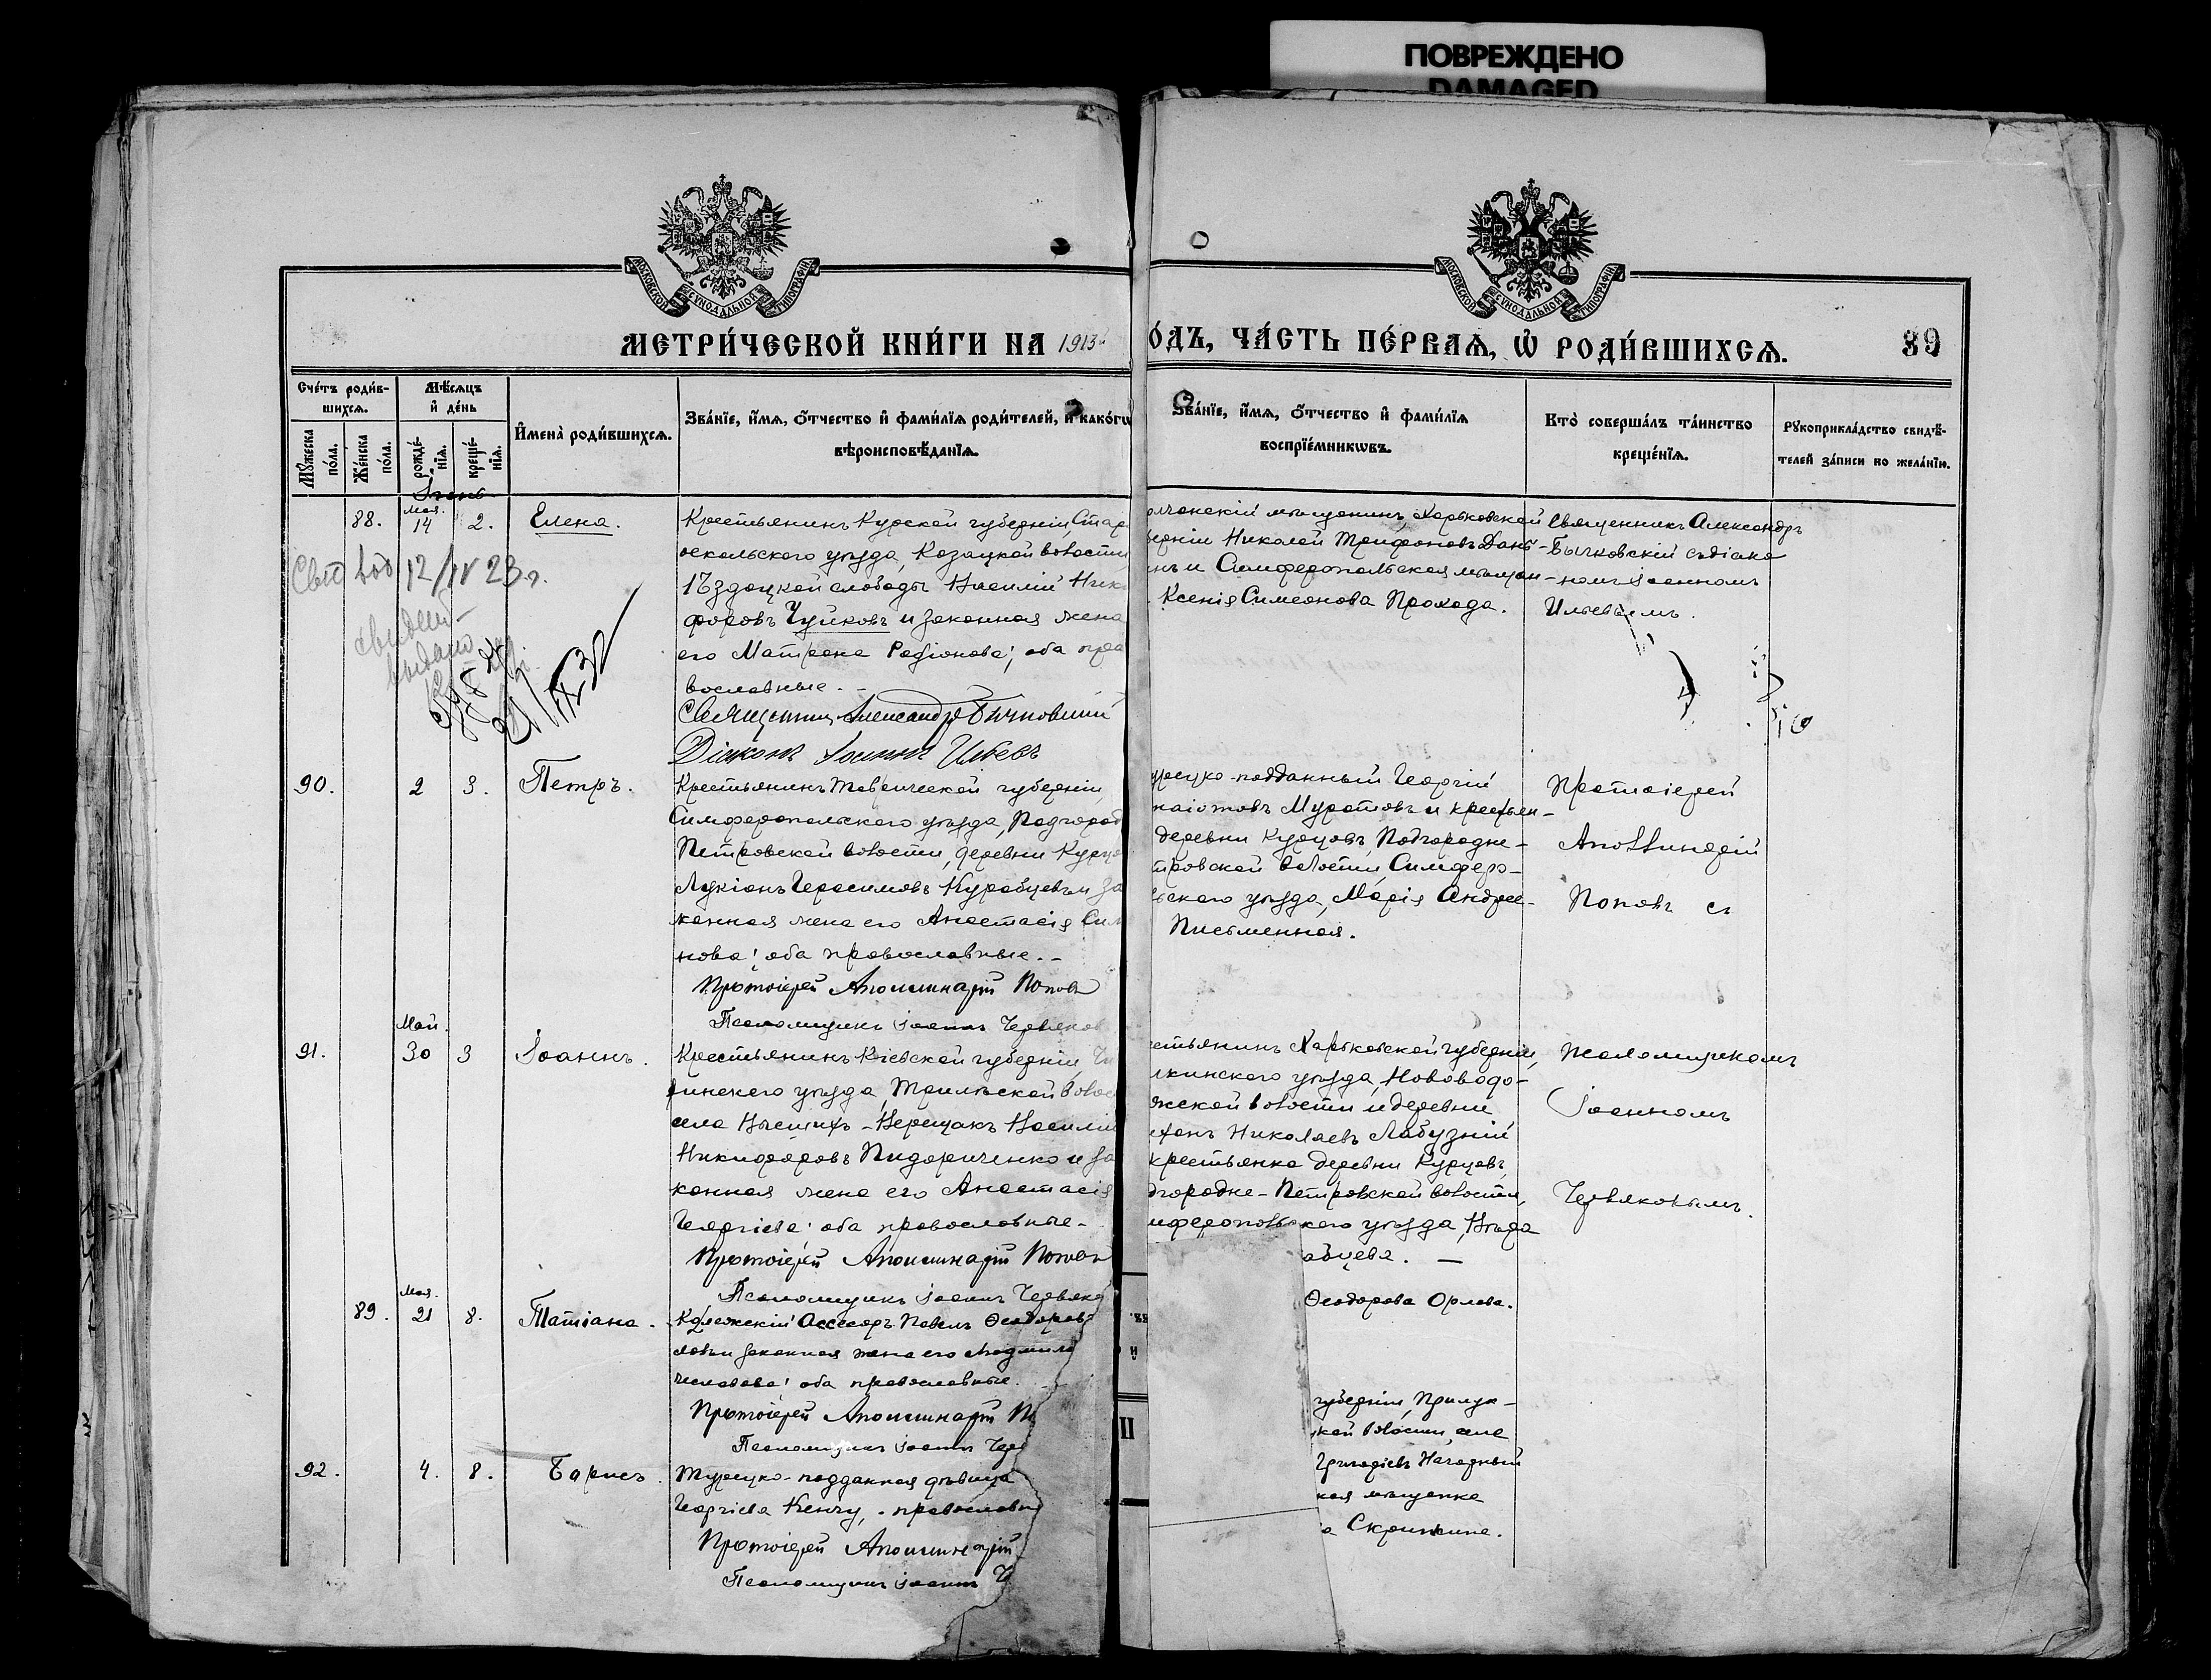 ПОВРЕЖДЕНО
DAMAGED
МОСКОВСКОЙ СѴНОДАЛЬНОЙ ТИПОГРАФІИ
МОСКОВСКОЙ СѴНОДАЛЬНОЙ ТИПОГРАФІИ
МЕТРИ́ЧЕСКОЙ КНИ́ГИ НА 1913
О́ДЪ, ЧА́СТЬ ПЕ́РВАЯ, Ѽ РОДИ́ВШИХСЯ.
89
Сче́тъ роди́в-
шихся.
Мѣ́сяцъ
и҆ де́нь
Мꙋ́жеска
по́ла.
Же́нска
по́ла.
рожде́-
нїя.
креще́-
нїя.
И҆мена̀ роди́вшихся.
Зва́нїе, и҆́мя, ѻ҆́тчество и҆ фами́лїя роди́телей, и҆ како́гѡ
вѣроисповѣ́данїя.
Зва́нїе, и҆́мя, ѻ҆́тчество и҆ фами́лїя
воспрїе́мникѡвъ.
Кто̀ соверша́лъ та́инство
креще́нїя.
Рꙋкоприкла́дство свидѣ́-
телей за́писи по жела́нїю.
88.
Мая.
14
2.
Елена.
Крестьянинъ Курской губерніи, Старо
оскольского уѣзда, Козацкой волости
Ѣздоцкой слободы Василій Ник
форовъ Чуйковъ и законная жена
его Матрона Родіонова; оба пра
вославные. –
Священникъ Александръ Бычковскій
Діаконъ Іоаннъ Ильевъ
олчанскій мѣщанинъ, Харьковской
берніи Николай Трифоновъ
нъ и Симферопольская мѣщан-
Ксенія Симеонова Прохода.
Священникъ Александръ
Бычковскій съ діако-
номъ Іоанномъ
Ильевымъ.
12/IV 23 г.
90.
2
3.
Петръ.
Крестьянинъ Таврической губерніи
Симферопольского уѣзда, Подгород
Петровской волости, деревни Курцо
Лукіанъ Герасимовъ Курабцевъ и за
конная жена его Анастасія Сим
нова; оба православные. –
Протоіерей Аполлинарій Поповъ
Псаломщикъ Іоаннъ Червяков
урецко-подданный Георгій
наіотовъ Муратовъ и крестьян-
деревни Курцовъ, Подгородне-
тровской волости, Симферо-
ьского уѣзда, Марія Андрее-
Письменная.
Протоіерей
Аполлинарій
Поповъ съ
91.
Май.
30
3
Іоаннъ.
Крестьянинъ Кіевской губерніи, Чи
ринского уѣзда, Трилѣской волос
села Вѣщихъ-Верещакъ Василій
Никифоровъ Пидориченко и за
конная жена его Анастасія
Георгіева; оба православные. –
Протоіерей Аполлинарій Поповъ
Псаломщикъ Іоаннъ Червяко
естьянинъ Харьковской губерніи,
лкинского уѣзда, Нововодо-
жской волости и деревни
Николаевъ Лабузній
крестьянка деревни Курцовъ,
дгородне-Петровской волости,
мферопольского уѣзда, Вѣра
абцева. –
псаломщикомъ
Іоанномъ
Червяковымъ.
89.
Мая.
21
8.
Татіана.
Коллежскій Ассесоръ Павелъ Ѳеодоровъ
ловъ и законная жена его Людмила
чеславова; оба православные.
Протоіерей Аполлинарій П
Псаломщикъ Іоаннъ Чер
Ѳеодорова Орлова.
92.
4.
8.
Борисъ.
Турецко-подданная дѣвица
Георгіева Кенчу, – православн
Протоіерей Аполлинарій
Псаломщикъ Іоаннъ Ч
губерніи, Прилук-
кой волости, села
Григоріевъ Нагорный
кая мѣщанка
а Скрипкина.